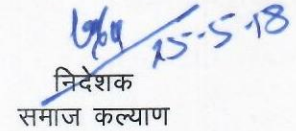 25-5-18
निदेशक
समाज कल्याण